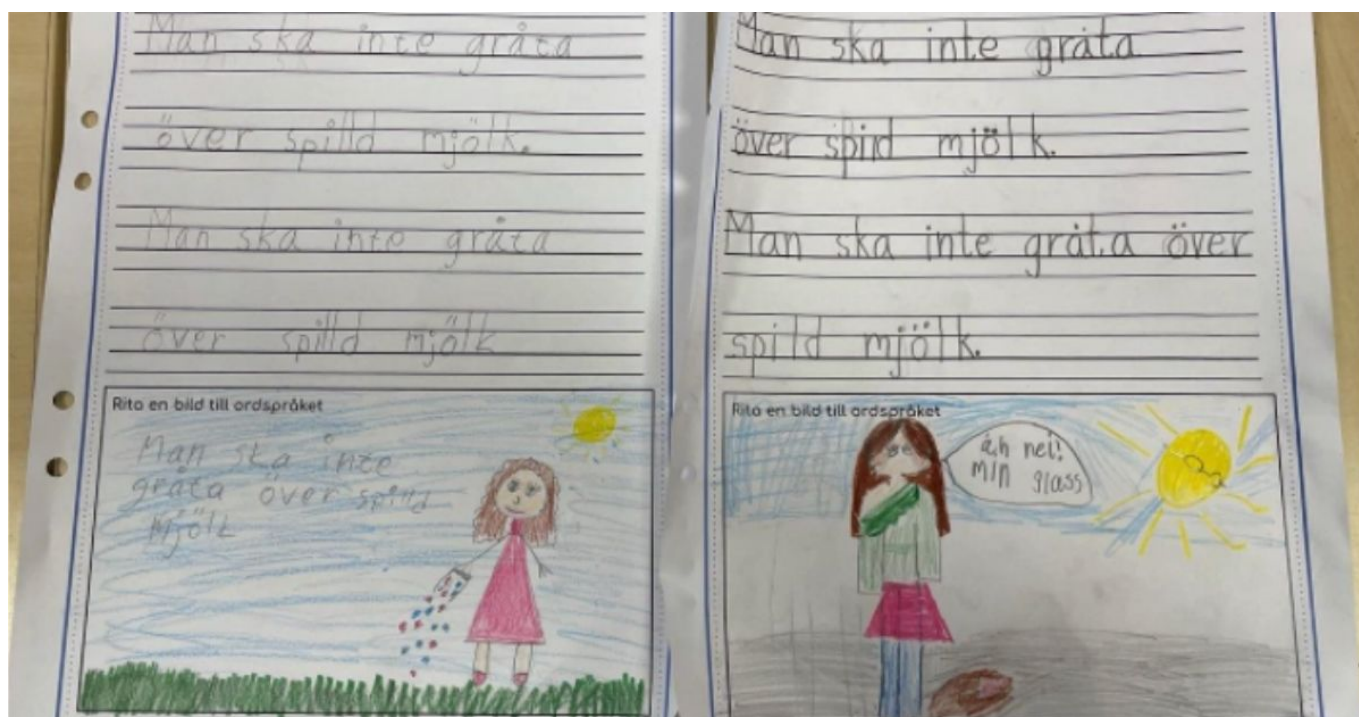 Man ska inte gråta
över spilld mjölk.
Man ska inte gråta
över spilld mjölk
Rita en bild till ordspråket
Man ska inte
gråta över spilld
mjölk
Man ska inte gråta
över spilld mjölk.
Man ska inte gråta över
spilld mjölk.
Rita en bild till ordspråket
åh nej!
min glass